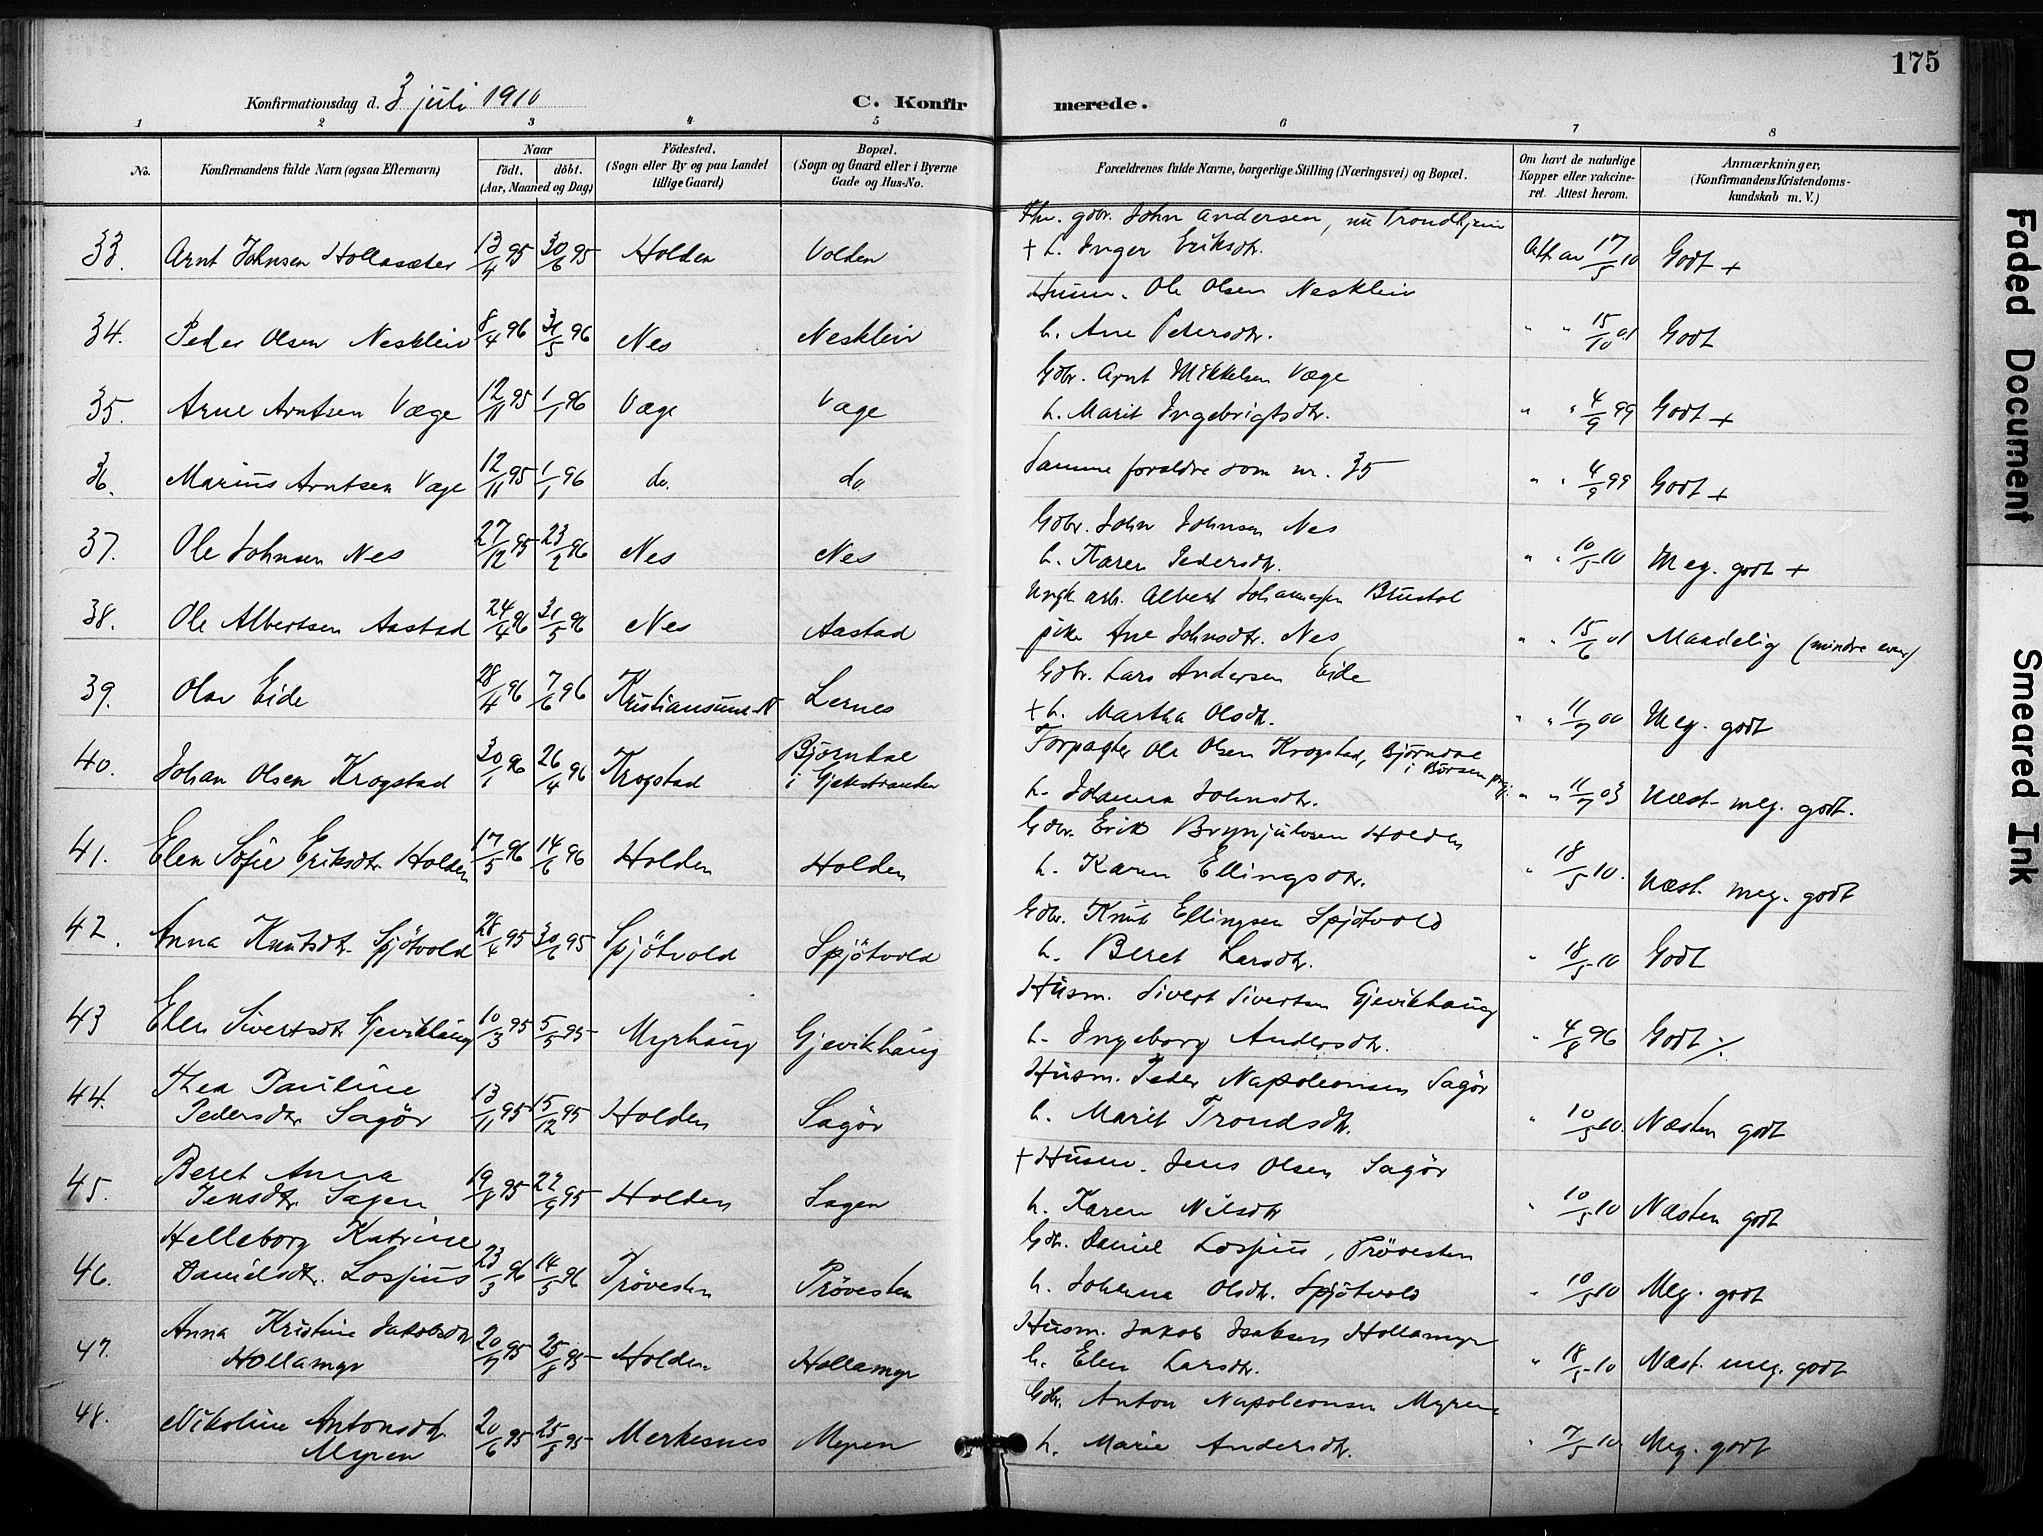 175
Konfirmationsdag d. 3 juli 1910 C. Konfirmerede.
1 2 3 4 5 6 7 8
No. Konfirmandens fulde Navn (ogsaa Efternavn) Naar født. døbt. (Aar, Maaned og Dag) Fødested. (Sogn eller By og paa Landet tillige Gaard) Bopæl. (Sogn og Gaard eller i Byerne Gade og Hus-No. Forældrenes fulde Navne, borgerlige Stilling (Næringsvei) og Bopæl. Om havt de naturlige Kopper eller vakcineret. Attest herom. Anmærkninger, (Konfirmandens Kristendomskundskab m. V.)
Fhv. gdbr. John Andersen, nu Trondhjem
33. Arnt Johnsen Hollasæter 13/4 95 30/6 95 Holden Volden + h. Inger Eriksdtr. Att. av 17/5 10 Godt +
Husm. Ole Olsen Neskleiv
34. Peder Olsen Neskleiv 8/4 96 31/5 96 Nes Neskleiv h. Ane Petersdtr. " " 15/10 01 Godt
Gdbr. Arnt Mikkelsen Væge
35. Arne Arntsen Væge 12/11 95 1/1 96 Væge Væge h. Marit Ingebrigtsdtr. " " 4/9 99 Godt +
36. Marius Arntsen Væge 12/11 95 1/1 96 do. do. Samme forældre som nr. 35 " " 4/9 99 Godt +
Gdbr. John Johnsen Nes
37. Ole Johnsen Nes 27/12 95 23/2 96 Nes Nes h. Karen Pedersdtr. " " 10/5 10 Meg. godt +
Ungk. arb. Albert Johannessen Brustol
38. Ole Albertsen Aastad 24/4 96 31/5 96 Nes Aastad pike Ane Johnsdtr. Nes " " 15/6 01 Maadelig (mindre evner)
Gdbr. Lars Andersen Eide
39. Olav Eide 28/4 96 7/6 96 Kristiansund N Lernes + h. Martha Olsdtr. " " 11/7 00 Meg. godt
Forpagter Ole Olsen Krogstad, Bjørndal i Børsen prgj.
40. Johan Olsen Krogstad 30/1 96 26/4 96 Krogstad Bjørndal i Gjekstranden h. Johanna Johnsdtr. " " 11/7 03 Næst. meg. godt.
Gdbr. Erik Brynjulvsen Holden
41. Elen Sofie Eriksdtr. Holden 17/5 96 14/6 96 Holden Holden h. Karen Ellingsdtr. " 18/5 10. Næst. meg. godt
Gdbr. Knut Ellingsen Spjötvold
42. Anna Knutsdtr. Spjötvold 28/4 95 30/6 95 Spjötvold Spjötvold h. Beret Larsdtr. " 18/5 10 Godt
Husm. Sivert Sivertsen Gjevikhaug
43 Elen Sivertsdtr. Gjevikhaug 10/3 95 5/5 95 Myrhaug Gjevikhaug h. Ingeborg Andersdtr. " 4/8 96 Godt ÷
Husm. Peder Napoleonsen Sagör
44. Thea Pauline Pedersdtr. Sagör 13/11 95 15/12 95 Holden Sagör h. Marit Trondsdtr. " 10/5 10. Næsten godt
+ Husm. Jens Olsen Sagör
45. Beret Anna Jensdtr. Sagen 19/8 95 22/9 95 Holden Sagen h. Karen Nilsdtr " 10/5 10 Næsten godt
Gdbr. Daniel Lossius, Prövesten
46. Helleborg Katrine Danielsdtr. Lossius 23/3 96 14/5 96 Prövesten Prövesten h. Johanna Olsdtr. Spjötvold " 10/5 10 Meg. godt
Husm. Jakob Isaksen Hollamyr
47. Anna Kristine Jakobsdtr Hollamyr 20/7 95 25/8 95 Holden Hollamyr h. Elen Larsdtr. " 18/5 10 Næst. meg. godt
Gdbr. Anton Napoleonsen Myren
48. Nikoline Antonsdtr. Myren 20/6 95 25/8 95 Merkesnes Myren h. Marie Andersdtr. " 7/5 10 Meg. godt
Faded Document
Smeared Ink